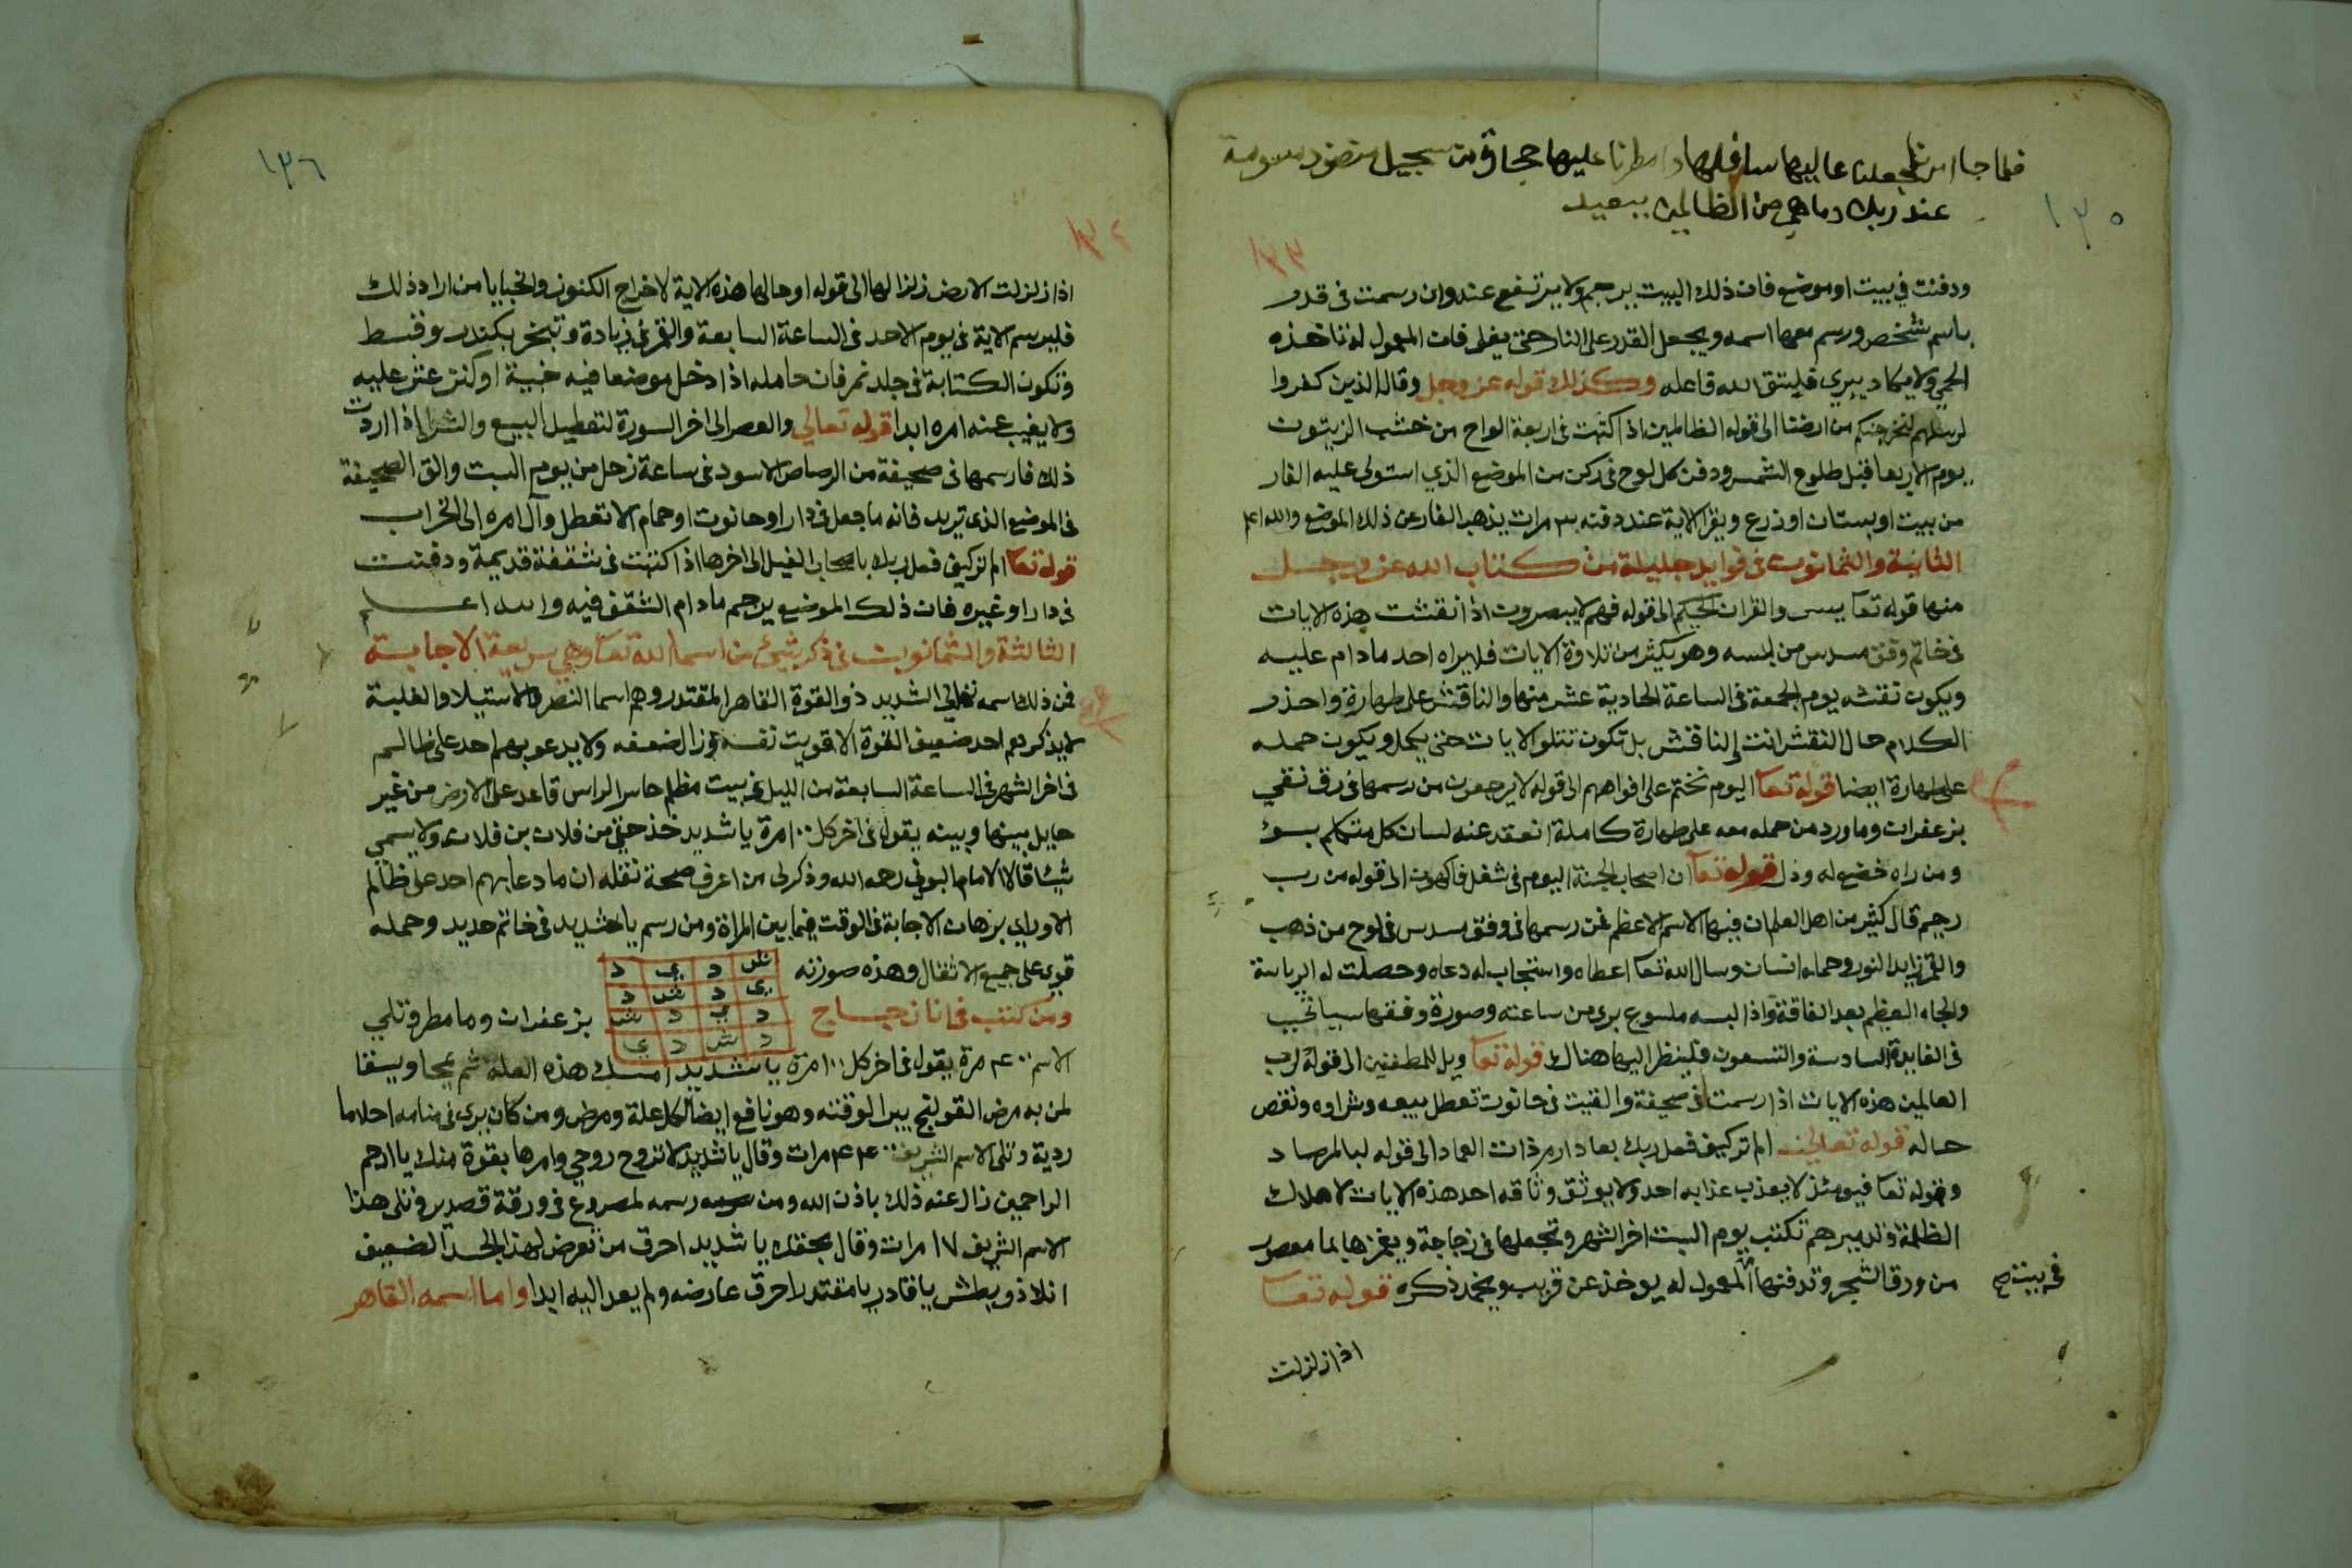 فلما جا امرنا جعلنا عاليها سافلها وامطرنا عليها حجارة من سجيل منضود مسومة
عند ربك وما هي من الظالمين ببعيد
١٣٥
١٣٣
ودفنت في بيت او موضع فان ذلك البيت يرجم ولا يرتفع عنه وان رسمت في قدر
باسم شخص ورسم معها اسمه ويجعل القدر على النار حتى يغلي فان المعمول له تاخذه
الحمى ولا يكاد يبري فليتق الله فاعله وكذلك قوله عز وجل وقال الذين كفروا
لرسلهم لنخرجنكم من ارضنا الى قوله الظالمين اذا كتبت في اربعة الواح من خشب الزيتون
يوم الاربعا قبل طلوع الشمس ودفن كل لوح في ركن من الموضع الذي استولى عليه الفار
من بيت او بستان او زرع ويقرا الاية عند دفنه ٣ مرات يذهب الفار عن ذلك الموضع والله اعلم
الثانية والثمانون في فوايد جليلة من كتاب الله عز وجل
منها قوله تعا يس والقران الحكيم الى قوله فهم لا يبصرون اذا نقشت هذه الايات
في خاتم وفق مسدس من لبسه وهو يكثر من تلاوة الايات فلا يراه احد ما دام عليه
ويكون نقشه يوم الجمعة في الساعة الحادية عشر منها والناقش على طهارة واحذر
الكلام حال النقش انت والناقش بل تكون تتلو الايات حتى يكمل ويكون حمله
على طهارة ايضا قوله تعا اليوم نختم على افواههم الى قوله لا يرجعون من رسمها في رق نقي
بزعفران وماورد من حمله معه على طهارة كاملة انعقد عنه لسان كل متكلم بسوء
ومن راه خضع له وذل قوله تعا ان اصحاب الجنة اليوم في شغل فاكهون الى قوله من رب
رحيم قال كثير من اهل العلم ان فيها الاسم الاعظم فمن رسمها في وفق مسدس في لوح من ذهب
والقمر زايد النور وحمله انسان وسال الله تعا اعطاه واستجاب له دعاه وحصلت له الرياسة
والجاه العظيم بعد الفاقة واذا لبسه ملسوع بري من ساعته وصورة وفقها سياتي
في الفايدة السادسة والتسعون فلينظر اليها هناك قوله تعا ويل للمطففين الى قوله لرب
العالمين هذه الايات اذا رسمت في صحيفة والقيت في حانوت تعطل بيعه وشراوه ونقص
حاله قوله تعالى الم تر كيف فعل ربك بعاد ارم ذات العماد الى قوله لبالمرصاد
وقوله تعا فيومئذ لا يعذب عذابه احد ولا يوثق وثاقه احد هذه الايات لاهلاك
الظلمة وتدميرهم تكتب يوم السبت اخر الشهر وتجعلها في زجاجة ويغمرها بما معصور
من ورق الشجر وتدفنها المعمول له يوخذ عن قريب ويخمد ذكره قوله تعا
في بيت صح
اذا زلزلت
١٣٦
١٣٤
اذا زلزلت الارض زلزالها الى قوله اوحى لها هذه الاية لاخراج الكنوز والخبايا من اراد ذلك
فليرسم الاية في يوم الاحد في الساعة السابعة والقمر في زيادة وتبخر بكندر وقسط
وتكون الكتابة في جلد نمر فان حامله اذا دخل موضعا فيه خبية او كنز عثر عليه
ولا يغيب عنه امره ابدا قوله تعالي والعصر الى اخر السورة لتعطيل البيع والشرا اذا اردت
ذلك فارسمها في صحيفة من الرصاص الاسود في ساعة زحل من يوم السبت والق الصحيفة
في الموضع الذي تريد فانه ما جعل في دار او حانوت او حمام الا تعطل وآل امره الى الخراب
قوله تعا الم تر كيف فعل ربك باصحاب الفيل الى اخرها اذا كتبت في شقفة قديمة ودفنت
في دار او غيره فان ذلك الموضع يرجم ما دام الشقف فيه والله اعلم
الثالثة والثمانون في ذكر شيء من اسما الله تعا وهي سريعة الاجابة
فمن ذلك اسمه تعالي الشديد ذو القوة القاهر المقتدر وهم اسما النصر والاستيلا والغلبة
لا يذكرهم احد ضعيف القوة الا قويت نفسه وزال ضعفه ولا يدعو بهم احد على ظالم
في اخر الشهر في الساعة السابعة من الليل في بيت مظلم حاسر الراس قاعد على الارض من غير
حايل بينها وبينه يقول في اخر كل ١٠٠ مرة يا شديد خذ حقي من فلان بن فلان ولا يسمي
شيا قال الامام البوني رحمه الله وذكر لي من اعرف صحة نقله ان ما دعا بهم احد على ظالم
الا وراي برهان الاجابة في الوقت فيما بين المراة ومن رسم يا شديد في خاتم حديد وحمله
قوي على جميع الاثقال وهذه صورته
ش د ي د
ي د ش د
د ي د ش
د ش د ي
ومن كتب في انا زجاج بزعفران وما مطر وتلي
الاسم ٤٠٠ مرة يقول في اخر كل ١٠٠ مرة يا شديد امسك هذه العلة ثم يمحا ويسقا
لمن به مرض القولنج يبرا لوقته وهو نافع ايضا لكل علة ومرض ومن كان يري في منامه احلاما
ردية وتلى الاسم الشريف مرات وقال يا شديد لا تروح روحي وامرها بقوة منك يا ارحم
الراحمين زال عنه ذلك باذن الله ومن رسمه لمصروع في ورقة قصدير وتلى هذا
الاسم الشريف ١٧ مرات وقال بحقك يا شديد احرق من تعرض لهذا الجسد الضعيف
يا ذو بطش يا قادر يا مقتدر احرق عارضه ولم يعد اليه ابدا واما اسمه القاهر